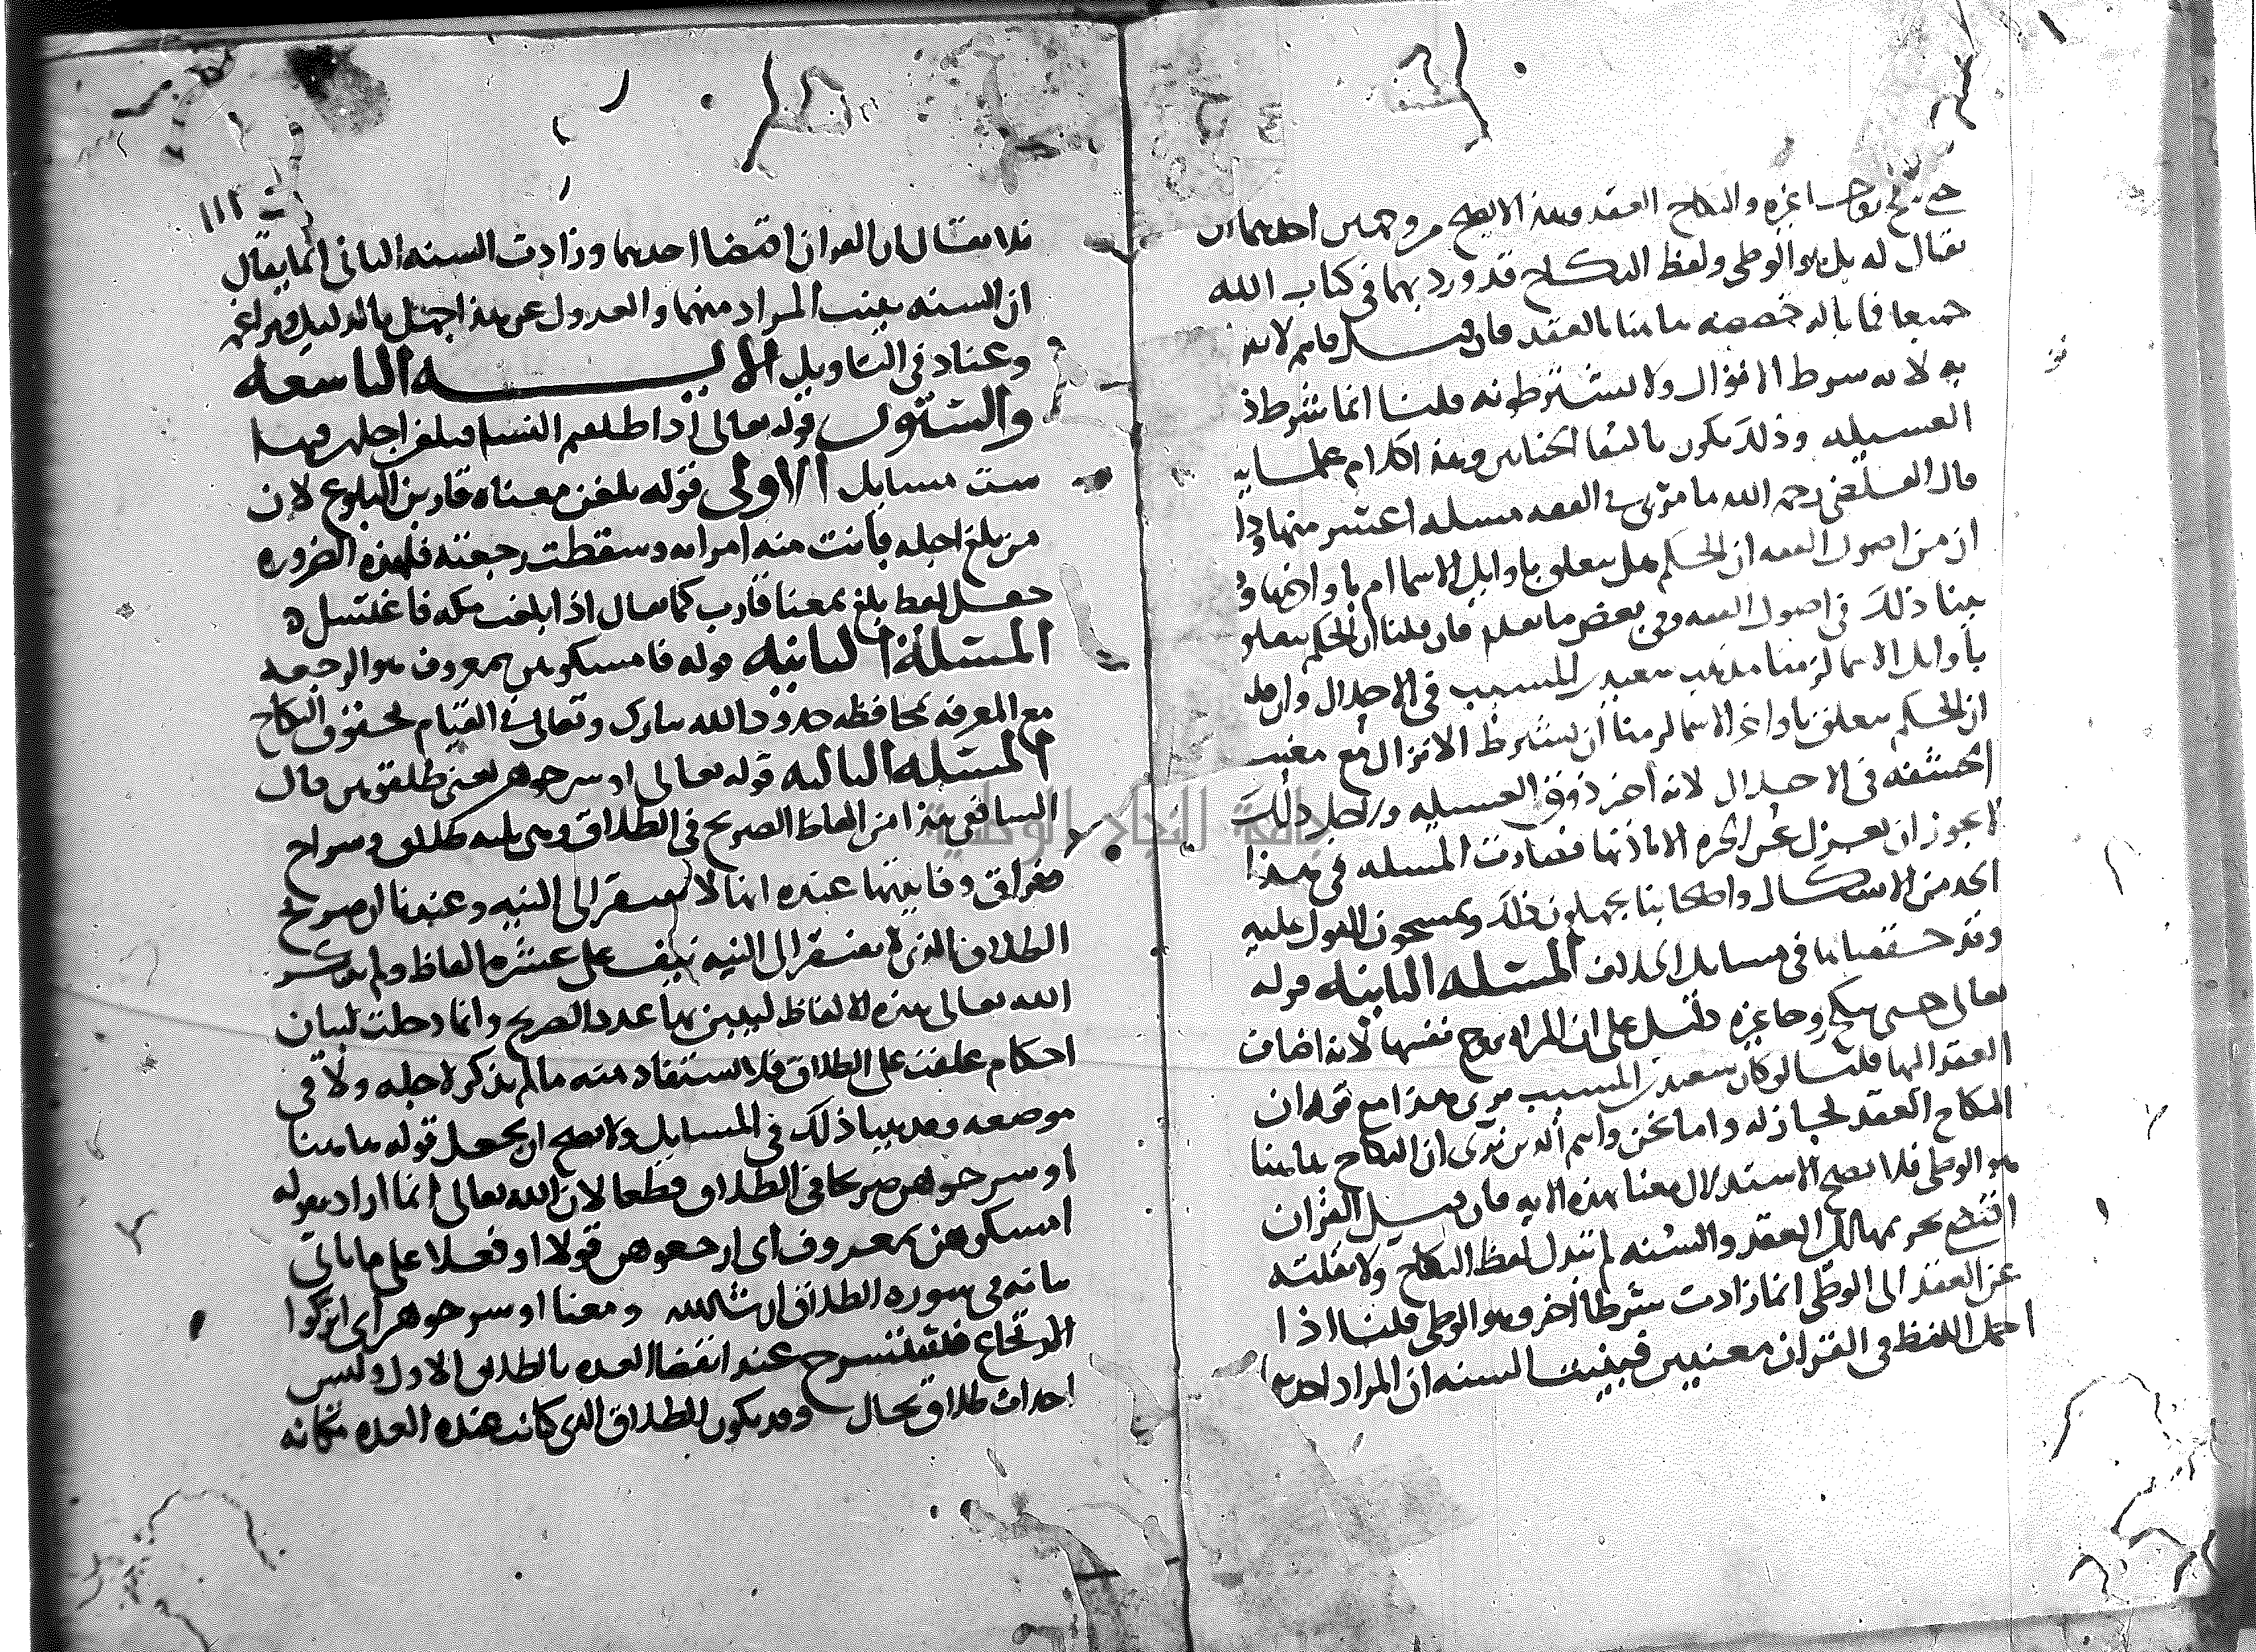 حتى تنكح زوجا غيره والنكاح العقد وهذا لا يصح من وجهين احدهما ان
يقال له بل هو الوطي ولفظ النكاح قد ورد بهما في كتاب الله
جميعا فما باله خصصه هاهنا بالعقد فان قيل
لانه شرط الانزال ولا نشترطونه قلنا انما شرط ذ
العسيله وذلك يكون بالتقا الختانين وهذا كلام علمايه
قال القاضي رحمه الله ما مر بي في الفقه مسله اعسر منها وذا
ان من اصول الفقه ان الحكم هل يتعلق باوايل الاسما ام باواخرها و
بينا ذلك في اصول الفقه وفي بعض ما تقدم فان قلنا ان الحكم يتعلق
باوايل الاسما لزمنا مذهب سعيد بن المسيب في الاحلال وان قلنا
ان الحكم يتعلق باواخر الاسما لزمنا ان نشترط الانزال مع مغيب
الحشفه في الاحلال لانه اخر ذوق العسيله ولاجل ذلك
لا يجوز ان يعزل عن الحره الا باذنها فصارت المسله في هذا
الحد من الاشكال واصحابنا يهملون ذلك ويمسحون القول عليه
وقد حققناها في مسايل الخلاف المسئله الثانيه قوله
تعالى حتى تنكح زوجا غيره دليل على ان المراه تزوج نفسها لانه اضاف
العقد اليها قلنا لو كان سعيد بن المسيب يرى هذا مع قوله ان
النكاح العقد لجاز له واما نحن وانتم الذين نرى ان النكاح هاهنا
هو الوطي فلا يصح الاستدلال معنا بهذه الايه فان قيل القران
اقتضى تحريمها الى العقد والسنه لم تبدل لفظ النكاح ولا نقلته
عن العقد الى الوطي انما زادت شرطا اخر وهو الوطي قلنا اذا
احتمل اللفظ في القران معنيين فبينت السنه ان المراد احدهما
١١١
فلا يقال ان القران اقتضا احدهما وزادت السنه الثاني انما يقال
ان السنه بينت المراد منهما والعدول عن هذا جهل بالدليل ومراغمه
وعناد في التاويل الايه التاسعه
والستون قوله تعالى اذا طلقتم النسا فبلغن اجلهن فيها
ست مسايل الاولى قوله بلغن معناه قاربن البلوغ لان
من بلغ اجله بانت منه امراته وسقطت رجعته فلهذه الضروره
جعل لفظ بلغ بمعنا قارب كما يقال اذا بلغت مكه فاغتسل ه
المسئله الثانيه قوله فامسكوهن بمعروف هو الرجعه
مع المعرفه بمحافظه حدود الله تبارك وتعالى في القيام بحقوق النكاح
المسئله الثالثه قوله تعالى او سرحوهن يعني طلقوهن قال
الشافعي هذا من الفاظ الصريح في الطلاق وهي ثلثه طلاق وسراح
وفراق وفايدتها عنده انها لا تفتقر الى النيه وعندنا ان صريح
الطلاق الذي لا يفتقر الى النيه نيف على عشره الفاظ ولم يذكر
الله تعالى هذه الالفاظ ليبين بها عدد الصريح وانما دخلت لبيان
احكام علقت على الطلاق فلا يستفاد منه ما لم يذكر لاجله ولا في
موضعه وقد بينا ذلك في المسايل ولا يصح ان يجعل قوله هاهنا
او سرحوهن صريحا في الطلاق قطعا لان الله تعالى انما اراد بقوله
امسكوهن بمعروف اي ارجعوهن قولا او فعلا على ما ياتي
بيانه في سوره الطلاق ان شا الله ومعنا او سرحوهن اي اتركوا
الارتجاع فلتنسرح عند انقضا العده بالطلاق الاول وليس
احداث طلاق بحال وقد يكون للطلاق الذي كانت هذه العده مكانه